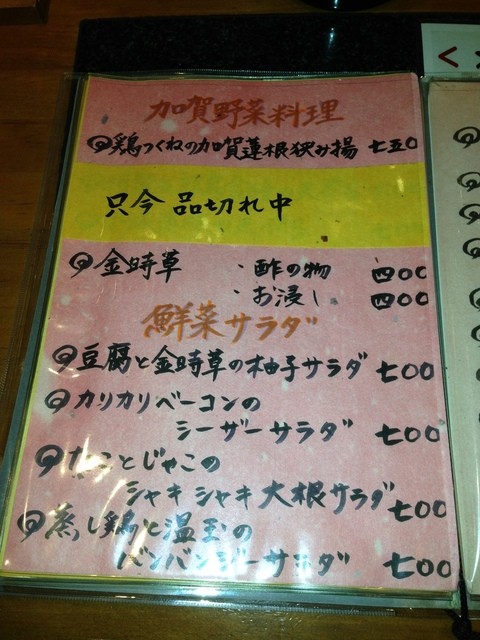 加賀野菜料理
鶏つくねの加賀蓮根挟み揚 七五〇
只今 品切れ中
金時草 ・酢の物 四〇〇
・お浸し 四〇〇
鮮菜サラダ
豆腐と金時草の柚子サラダ 七〇〇
カリカリベーコンの
シーザーサラダ 七〇〇
たことじゃこの
シャキシャキ大根サラダ 七〇〇
蒸し鶏と温玉の
バンバンジーサラダ 七〇〇